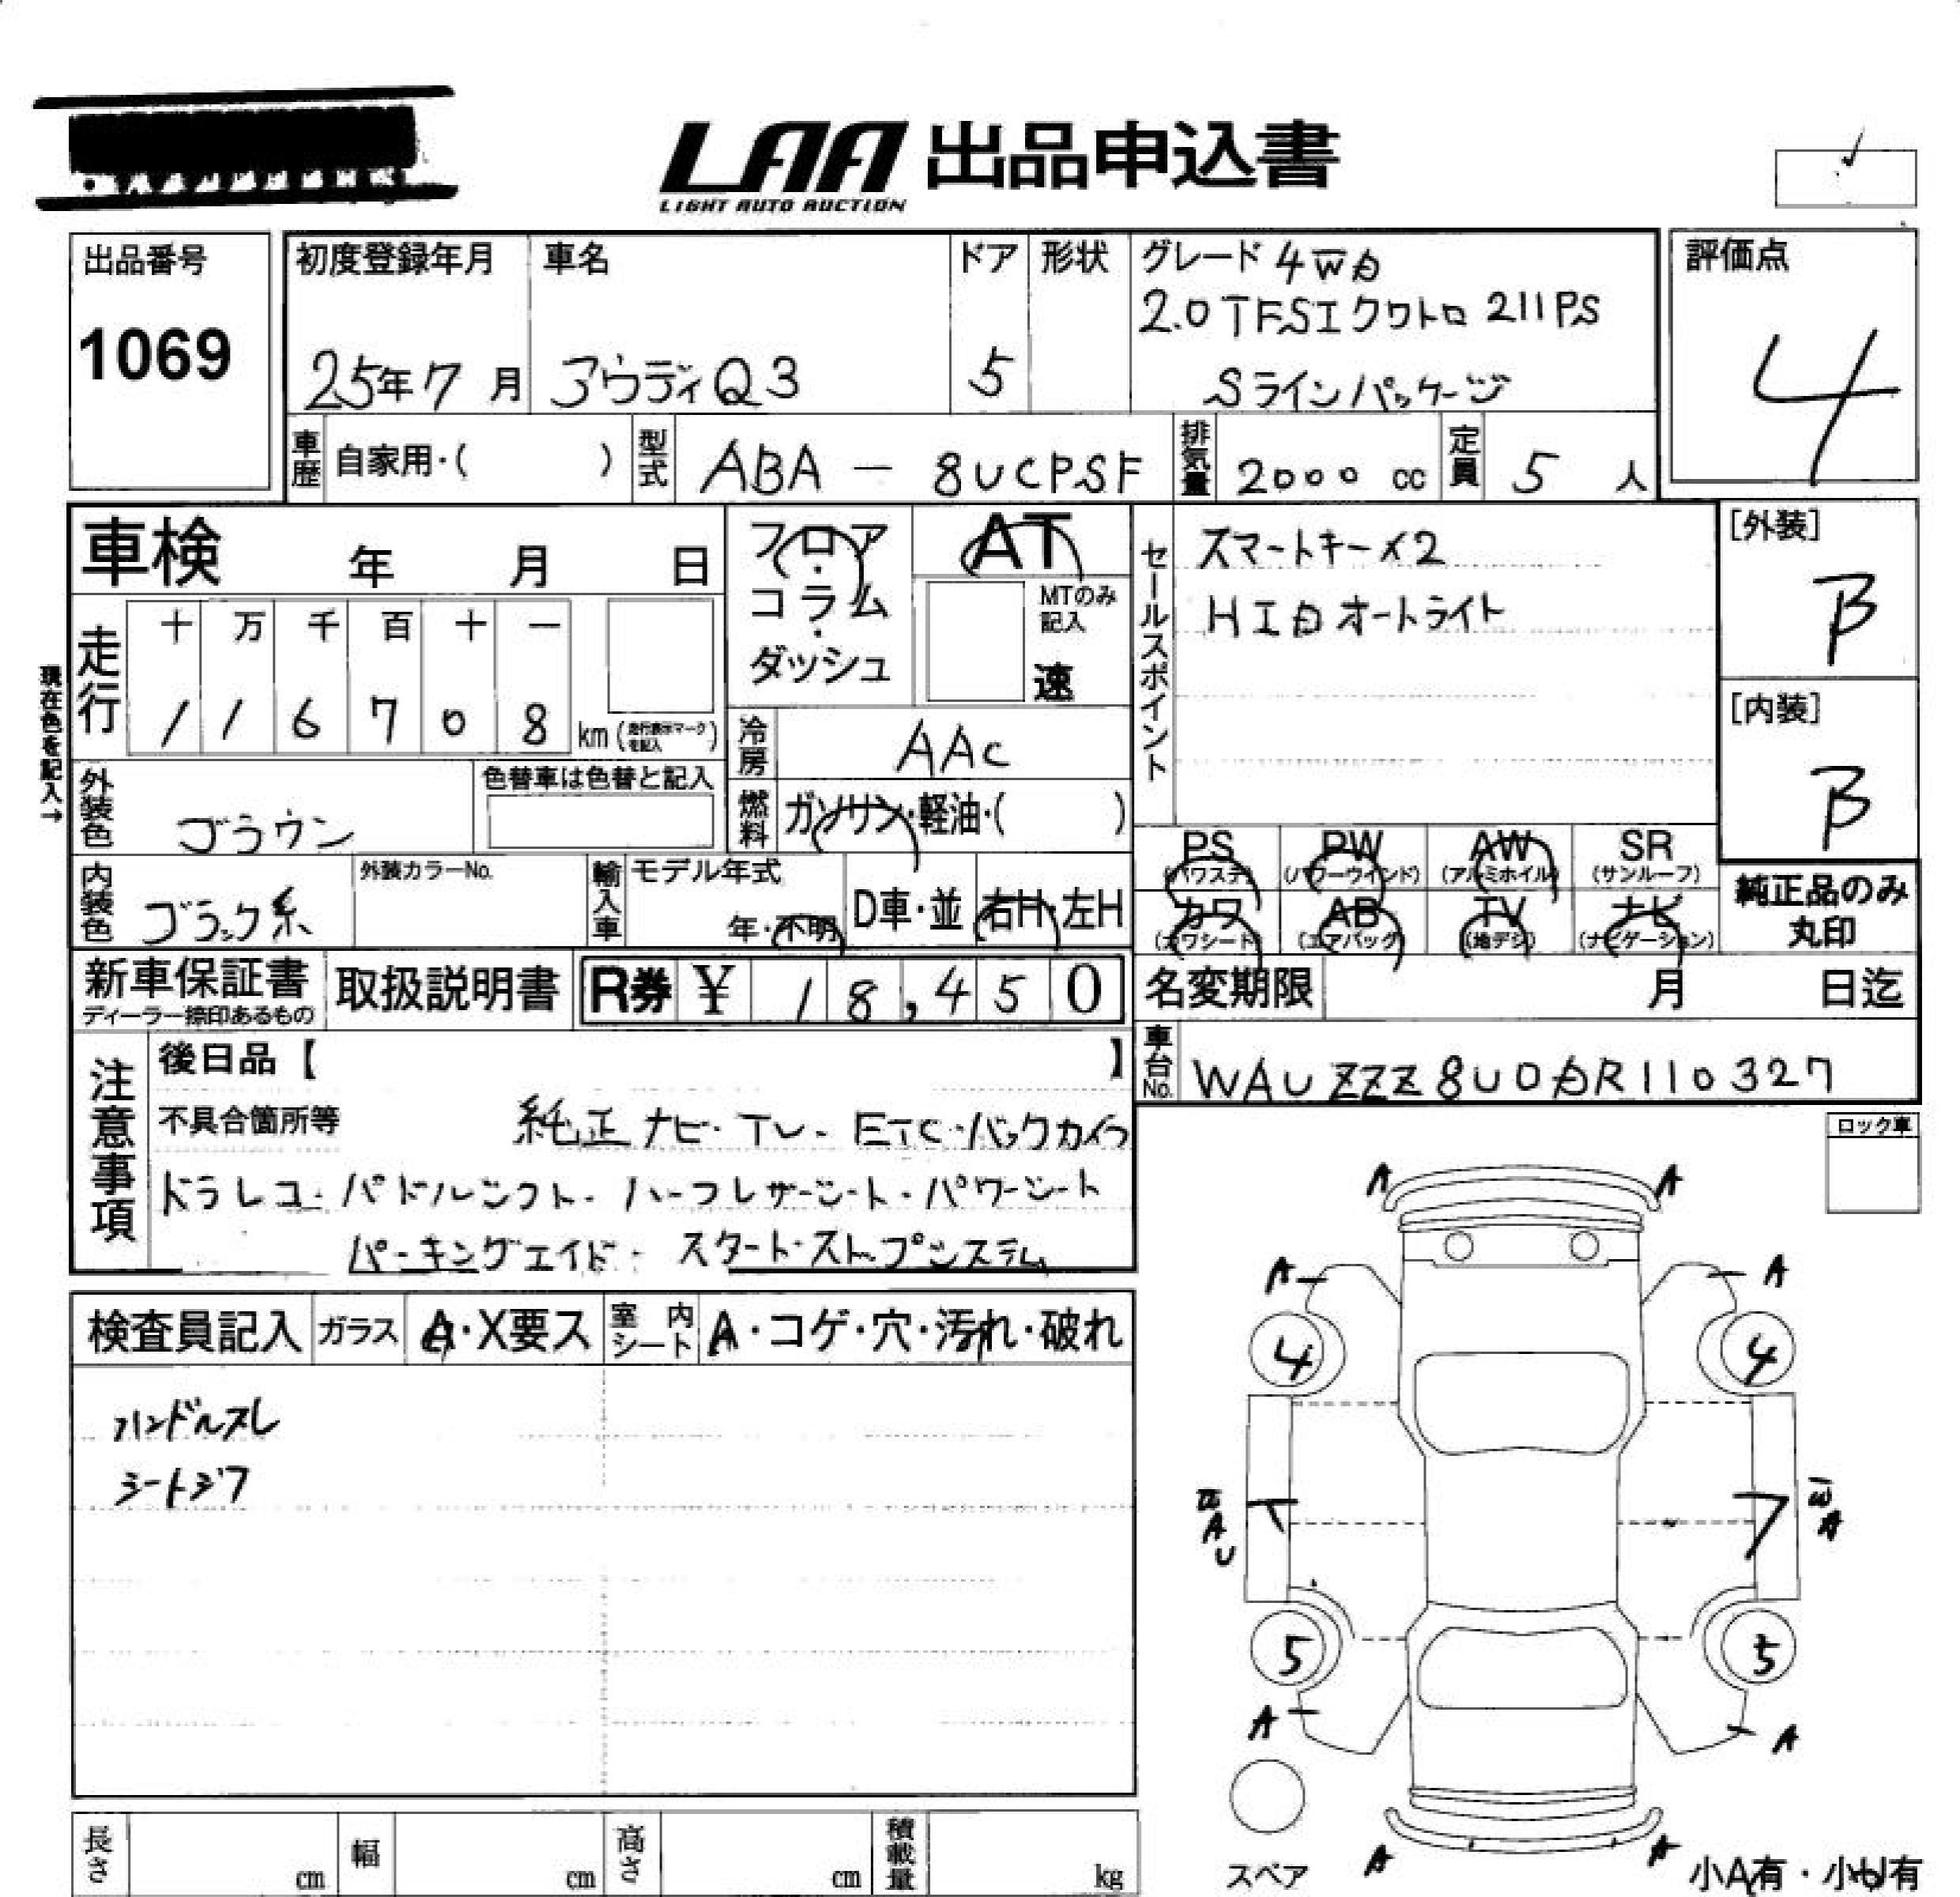 LAA 出品申込書
LIGHT AUTO AUCTION
出品番号
1069
初度登録年月
25年7月
車名
アウディQ3
ドア
5
形状
グレード 4WD
2.0TFSIクワトロ 211PS
Sラインパッケージ
評価点
4
車歴
自家用・( )
型式
ABA - 8UCPSF
排気量
2000 cc
定員
5 人
車検 年 月 日
走行
十 万 千 百 十 一
1 1 6 7 0 8 km (走行表示マークを記入)
現在色を記入→
外装色
ブラウン
色替車は色替と記入
内装色
ブラック系
外装カラーNo.
フロア・コラム・ダッシュ
AT
MTのみ記入
速
冷房
AAC
燃料
ガソリン・軽油・( )
輸入車
モデル年式
年・不明
D車・並
右H・左H
セールスポイント
スマートキー×2
HIDオートライト
[外装]
B
[内装]
B
PS PW AW SR
(パワステ) (パワーウインド) (アルミホイル) (サンルーフ)
カワ AB TV ナビ
(カワシート) (エアバック) (地デジ) (ナビゲーション)
純正品のみ
丸印
新車保証書
ディーラー捺印あるもの
取扱説明書
R券 ¥ 18,450
名変期限 月 日迄
車台No.
WAUZZZ8U0DR110327
注意事項
後日品【 】
不具合箇所等
純正ナビ・TV・ETC・バックカメラ
ドラレコ・パドルシフト・ハーフレザーシート・パワーシート
パーキングエイド・スタート・ストップシステム
検査員記入
ガラス
A・X要ス
室内シート
A・コゲ・穴・汚れ・破れ
ハンドルスレ
シートシワ
ロック車
A A
A A
4 4
W
A
U
W
A
5 5
A A
A A
スペア
小A有・小U有
長さ cm
幅 cm
高さ cm
積載量 kg